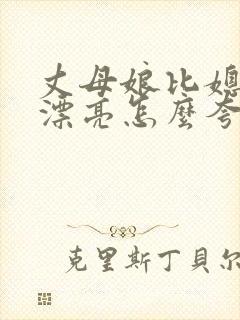 丈母娘比媳
漂亮怎麼夸
克里斯丁貝尔